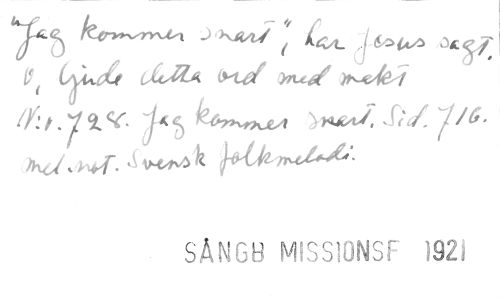 "Jag kommer snart", har Jesus sagt.
O, ljude detta ord med makt
N:r. 728. Jag kommer snart. Sid. 716.
med not. Svensk folkmelodi.
SÅNGB MISSIONSF 1921